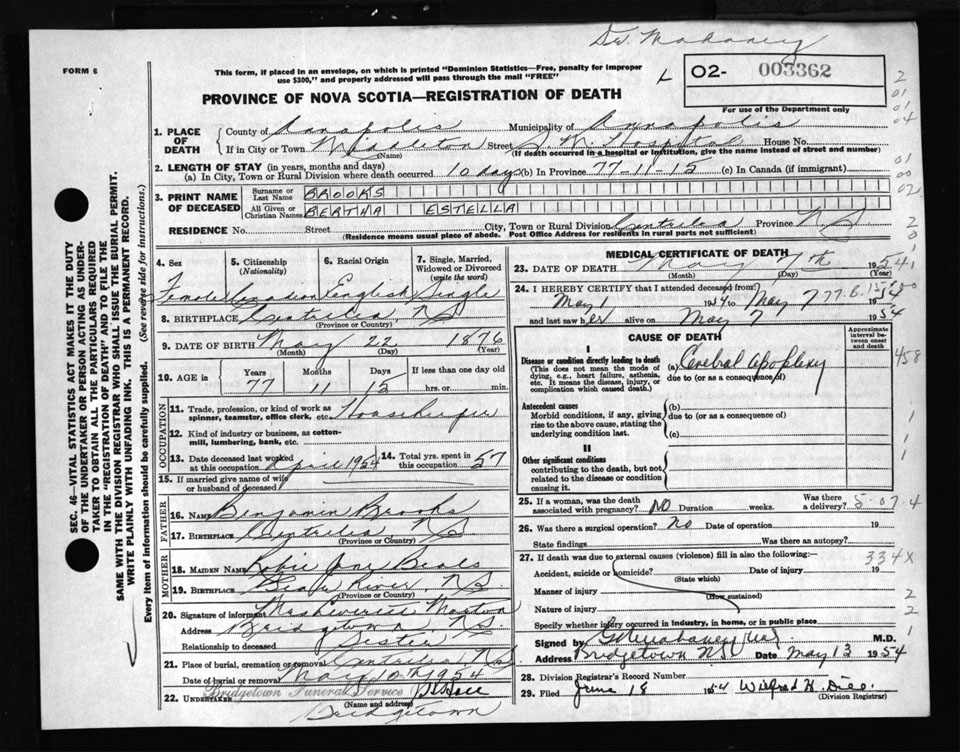 Dr. Mahaney
FORM 6
This form, if placed in an envelope, on which is printed "Dominion Statistics—Free, penalty for improper
use $300," and properly addressed will pass through the mail "FREE"
O2- 003362
PROVINCE OF NOVA SCOTIA—REGISTRATION OF DEATH
For use of the Department only
1. PLACE OF DEATH
County of Annapolis Municipality of Annapolis
If in City or Town Middleton Street S. M. Hospital House No.
(Name) (If death occurred in a hospital or institution, give the name instead of street and number)
2. LENGTH OF STAY (in years, months and days)
(a) In City, Town or Rural Division where death occurred 10 days (b) In Province 77-11-15 (c) In Canada (if immigrant)
3. PRINT NAME OF DECEASED
Surname or Last Name BROOKS
All Given or Christian Names BERTHA ESTELLA
RESIDENCE No. Street City, Town or Rural Division Centrelea Province N.S.
(Residence means usual place of abode. Post Office Address for residents in rural parts not sufficient)
4. Sex Female
5. Citizenship (Nationality) Canadian
6. Racial Origin English
7. Single, Married, Widowed or Divorced (write the word) Single
8. BIRTHPLACE Centrelea, N.S.
(Province or Country)
9. DATE OF BIRTH May 22 1876
(Month) (Day) (Year)
10. AGE in Years Months Days If less than one day old
77 11 15 hrs. or min.
OCCUPATION
11. Trade, profession, or kind of work as spinner, teamster, office clerk, etc. Housekeeper
12. Kind of industry or business, as cotton-mill, lumbering, bank, etc.
13. Date deceased last worked at this occupation April 1954
14. Total yrs. spent in this occupation 57
15. If married give name of wife or husband of deceased
FATHER
16. Name Benjamin Brooks
17. Birthplace Centrelea N.S.
(Province or Country)
MOTHER
18. MAIDEN NAME Jane Beals
19. BIRTHPLACE River, N.S.
(Province or Country)
20. Signature of informant Mrs. Morton
Address Bridgetown, N.S.
Relationship to deceased Sister
21. Place of burial, cremation or removal Centrelea, N.S.
Date of burial or removal May 10th 1954
22. UNDERTAKER Bridgetown Funeral Service
(Name and address)
Bridgetown
MEDICAL CERTIFICATE OF DEATH
23. DATE OF DEATH May 7th 1954
(Month) (Day) (Year)
24. I HEREBY CERTIFY that I attended deceased from
May 1 1954 to May 7 1954
and last saw her alive on May 7 1954
CAUSE OF DEATH
Approximate interval between onset and death
I
Disease or condition directly leading to death
(This does not mean the mode of dying, e.g., heart failure, asthenia, etc. It means the disease, injury, or complication which caused death.)
(a) Cerebal apoplexy
due to (or as a consequence of)
Antecedent causes
Morbid conditions, if any, giving rise to the above cause, stating the underlying condition last.
(b)
due to (or as a consequence of)
(c)
II
Other significant conditions
contributing to the death, but not related to the disease or condition causing it.
25. If a woman, was the death associated with pregnancy? NO Duration weeks. Was there a delivery?
26. Was there surgical operation? No Date of operation 19
State findings Was there an autopsy?
27. If death was due to external causes (violence) fill in also the following:—
Accident, suicide or homicide? Date of injury 19
(State which)
Manner of injury
(How sustained)
Nature of injury
Specify whether injury occurred in industry, in home, or in public place
334X
Signed by M.D.
Address Bridgetown N.S. Date May 13 1954
28. Division Registrar's Record Number
29. Filed June 18 1954
(Division Registrar)
SEC. 46—VITAL STATISTICS ACT MAKES IT THE DUTY
OF THE UNDERTAKER OR PERSON ACTING AS UNDER-
TAKER TO OBTAIN ALL THE PARTICULARS REQUIRED
IN THE "REGISTRATION OF DEATH" AND TO FILE THE
SAME WITH THE DIVISION REGISTRAR WHO SHALL ISSUE THE BURIAL PERMIT.
WRITE PLAINLY WITH UNFADING INK. THIS IS A PERMANENT RECORD.
Every item of information should be carefully supplied. (See reverse side for instructions.)